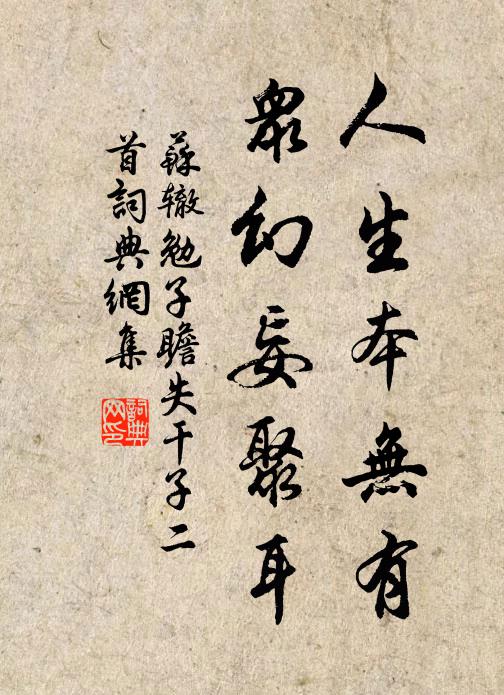 人生本無有
眾幻妄聚耳
蘇轍勉子瞻失干子二
首詞典網集
詞典网印